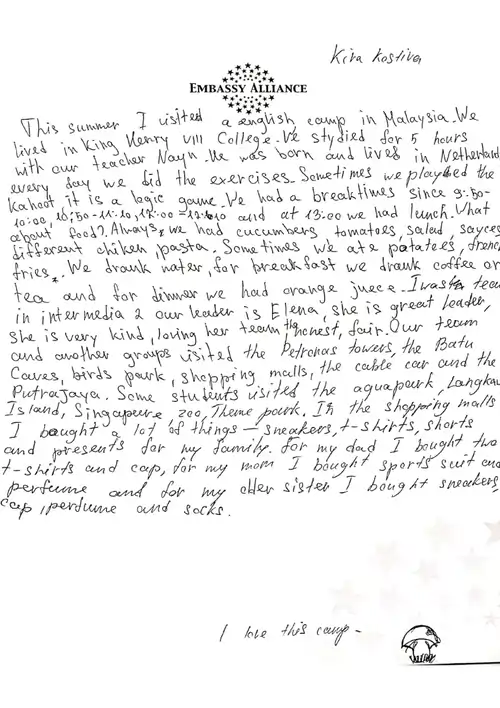 Kira Kostiva
EMBASSY ALLIANCE
This summer I visited a english camp in Malaysia. We
lived in King Henry VIII College. We stydied for 5 hours
with our teacher Nayn. He was born and lived in Netherland
every day we did the exercises. Sometimes we played the
Kahoot it is a logic game. We had a breaktimes since 9:50-
10:00, 10:50-11:10, and at 13:00 we had lunch. What
about food? Always, we had cucumbers tomatoes, salad, sayces
different chiken, pasta. Sometimes we ate patatees, french
fries. We drank water, for breakfast we drank coffee or
tea and for dinner we had orange juece. I was in team
in intermedia 2 our leader is Elena, she is great leader,
she is very kind, loving her team, the honest, fair. Our team
and another groups visited the Petronas towers, the Batu
Caves, birds park, shopping malls, the cable car and the
Putrajaya. Some students visited the aquapark, Langkawi
Island, Singapure zoo, Theme park. In the shopping malls
I bought a lot of things – sneakers, t-shirts, shorts
and presents for my family. for my dad I bought two
t-shirts and cap, for my mom I bought sports suit and
perfume and for my older sister I bought sneakers,
cap, perfume and socks.
I love this camp-